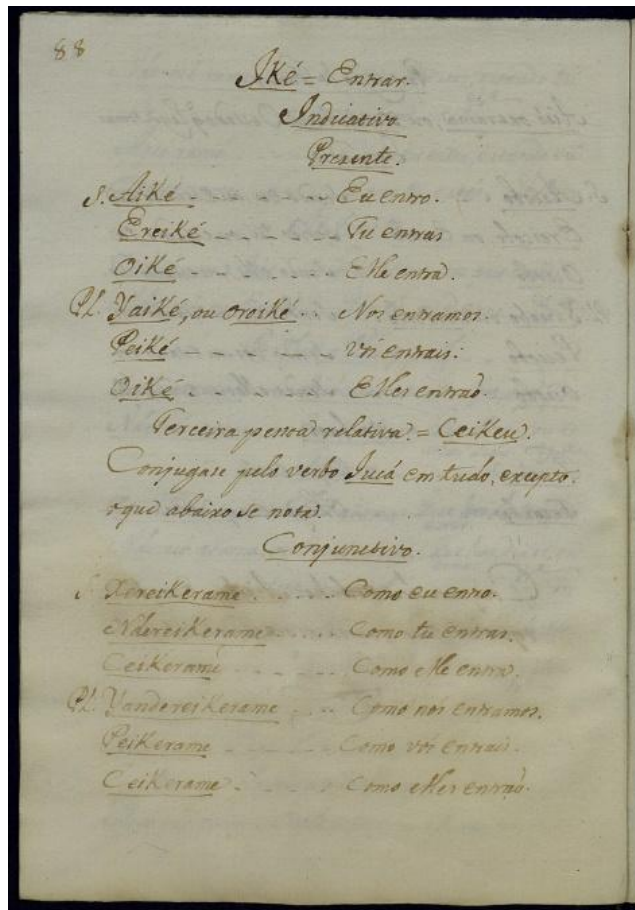 88
Iké = Entrar.
Indicativo.
Prezente.
S. Aiké - - - - Eu entro.
Ereiké - - - - Tu entras
Oiké - - - - Elle entra.
Pl. Yaiké, ou oroiké - - Nos entramos.
Peiké - - - - Vós entrais.
Oiké - - - - Elles entraõ.
Terceira pessoa relativa = Ceikeu.
Conjugase pelo verbo Jucá em tudo, excepto
oque abaixo se nota.
Conjunctivo.
S. Xereikerame - - - - Como eu entro.
Ndereikerame - - - - Como tu entras.
Ceikerame - - - - Como elle entra.
Pl. Yandereikerame - - - Como nós entramos.
Peikerame - - - - Como vós entrais.
Ceikerame - - - - Como elles entraõ.